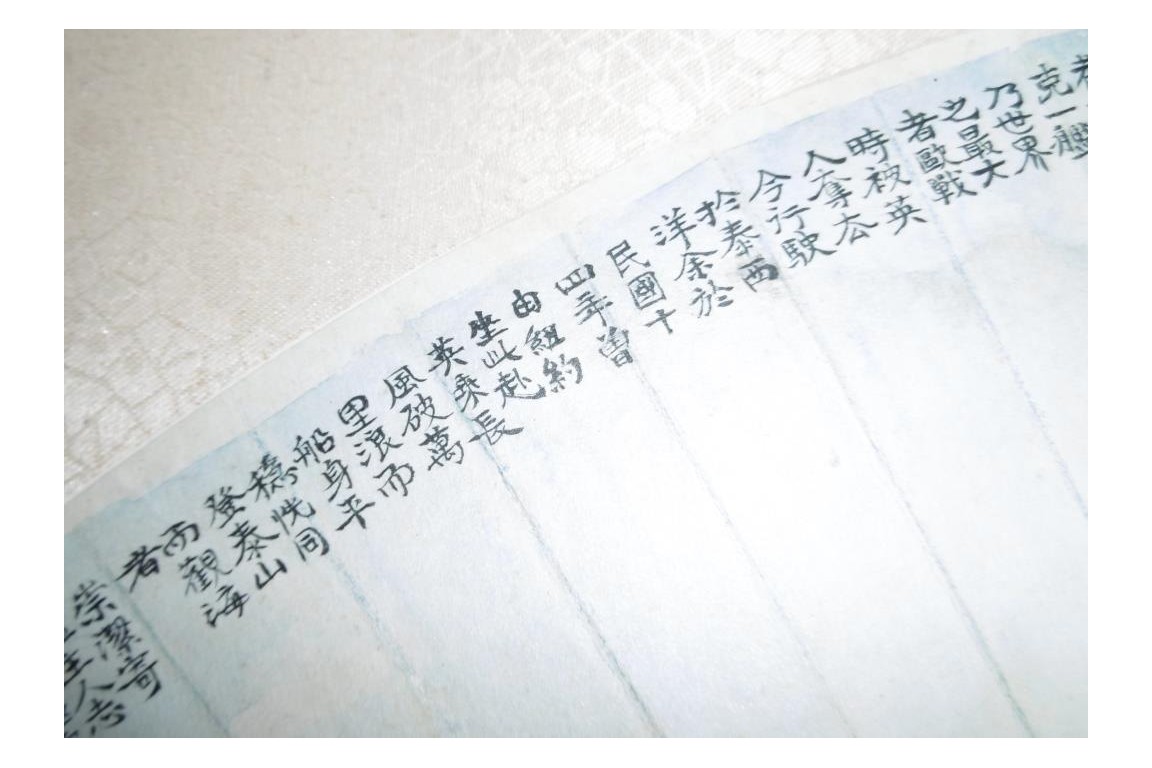 者
克一艦
乃世界
之最大
者歐戰
時被英
人奪去
今行駛
於泰西
洋余於
民國十
四年曾
由紐約
坐此赴
英乘長
風破萬
里浪而
船身平
穩恍同
登泰山
而觀海
者
崇潔寄
主人志